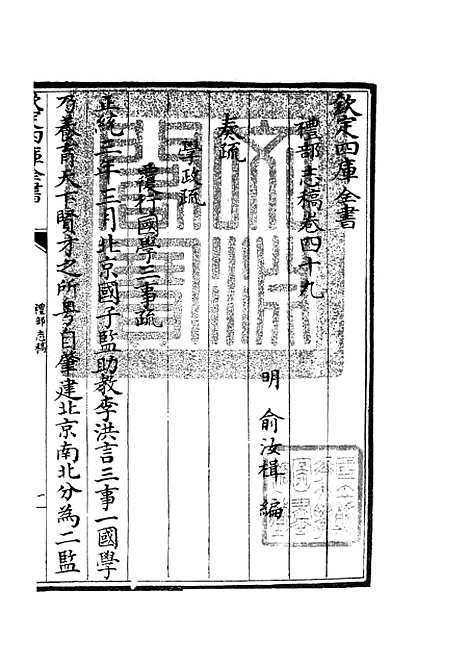 欽定四庫全書
禮部志稿卷四十九
明 俞汝楫 編
奏疏
學政疏
覆行國學三事疏
正統三年三月北京國子監助教李洪言三事一國學
乃養育天下賢才之所粤自肇建北京南北分為二監
欽定四庫全書
禮部志稿
一